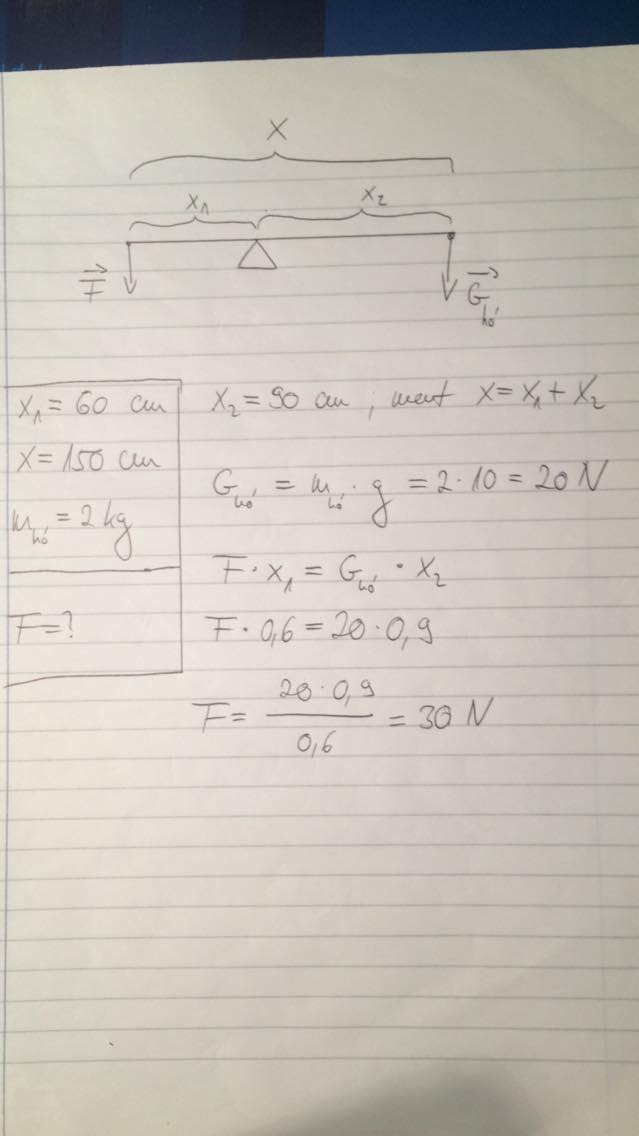 X
x₁ x₂
F⃗ G⃗hó
x₁ = 60 cm
x = 150 cm
mhó = 2 kg
F = ?
x₂ = 90 cm ; mert x = x₁ + x₂
Ghó = mhó · g = 2 · 10 = 20 N
F · x₁ = Ghó · x₂
F · 0,6 = 20 · 0,9
F = 20 · 0,9 / 0,6 = 30 N